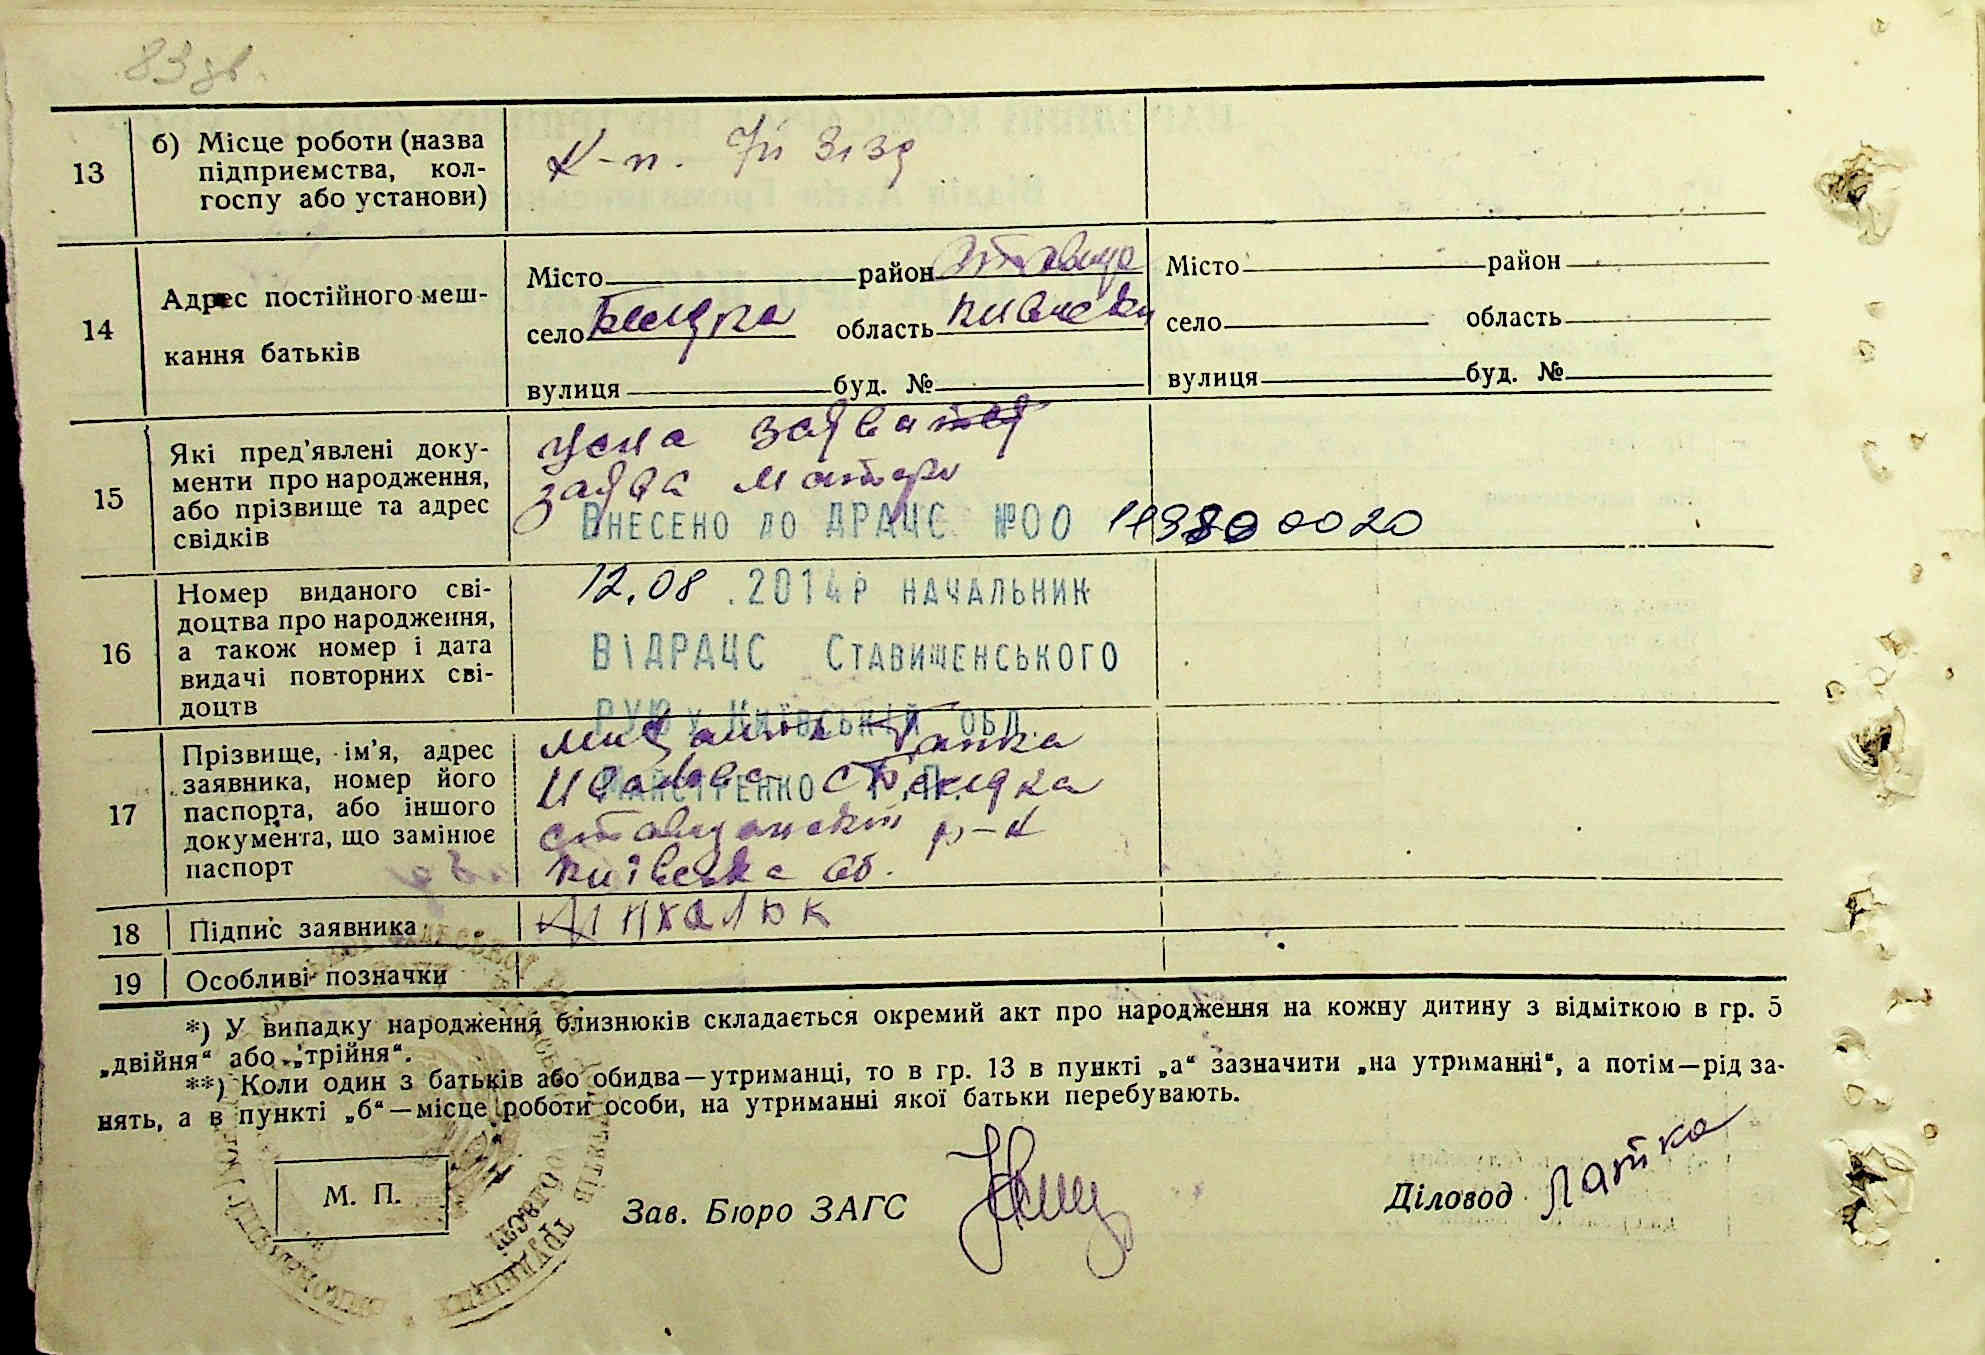 83 зв.
13
б) Місце роботи (назва
підприємства, кол-
госпу або установи)
К-п. 7й Зізд
14
Адрес постійного меш-
кання батьків
Місто район Ставище
село Бендра область Київська
вулиця буд. №
Місто район
село область
вулиця буд. №
15
Які пред'явлені доку-
менти про народження,
або прізвище та адрес
свідків
усна
заява матери
Внесено до ДРАЦС №00
16
Номер виданого сві-
доцтва про народження,
а також номер і дата
видачі повторних сві-
доцтв
12.08 .2014р начальник
ВіДРАЦС Ставищенського
РУЮ у Київській обл.
17
Прізвище, ім'я, адрес
заявника, номер його
паспорта, або іншого
документа, що замінює
паспорт
Ганка
р-н
Київська об.
18
Підпис заявника
Михалюк
19
Особливі позначки
*) У випадку народження близнюків складається окремий акт про народження на кожну дитину з відміткою в гр. 5
„двійня“ або „трійня“.
**) Коли один з батьків або обидва—утриманці, то в гр. 13 в пункті „а“ зазначити „на утриманні“, а потім—рід за-
нять, а в пункті „б“—місце роботи особи, на утриманні якої батьки перебувають.
М. П.
Зав. Бюро ЗАГС
Діловод Латка